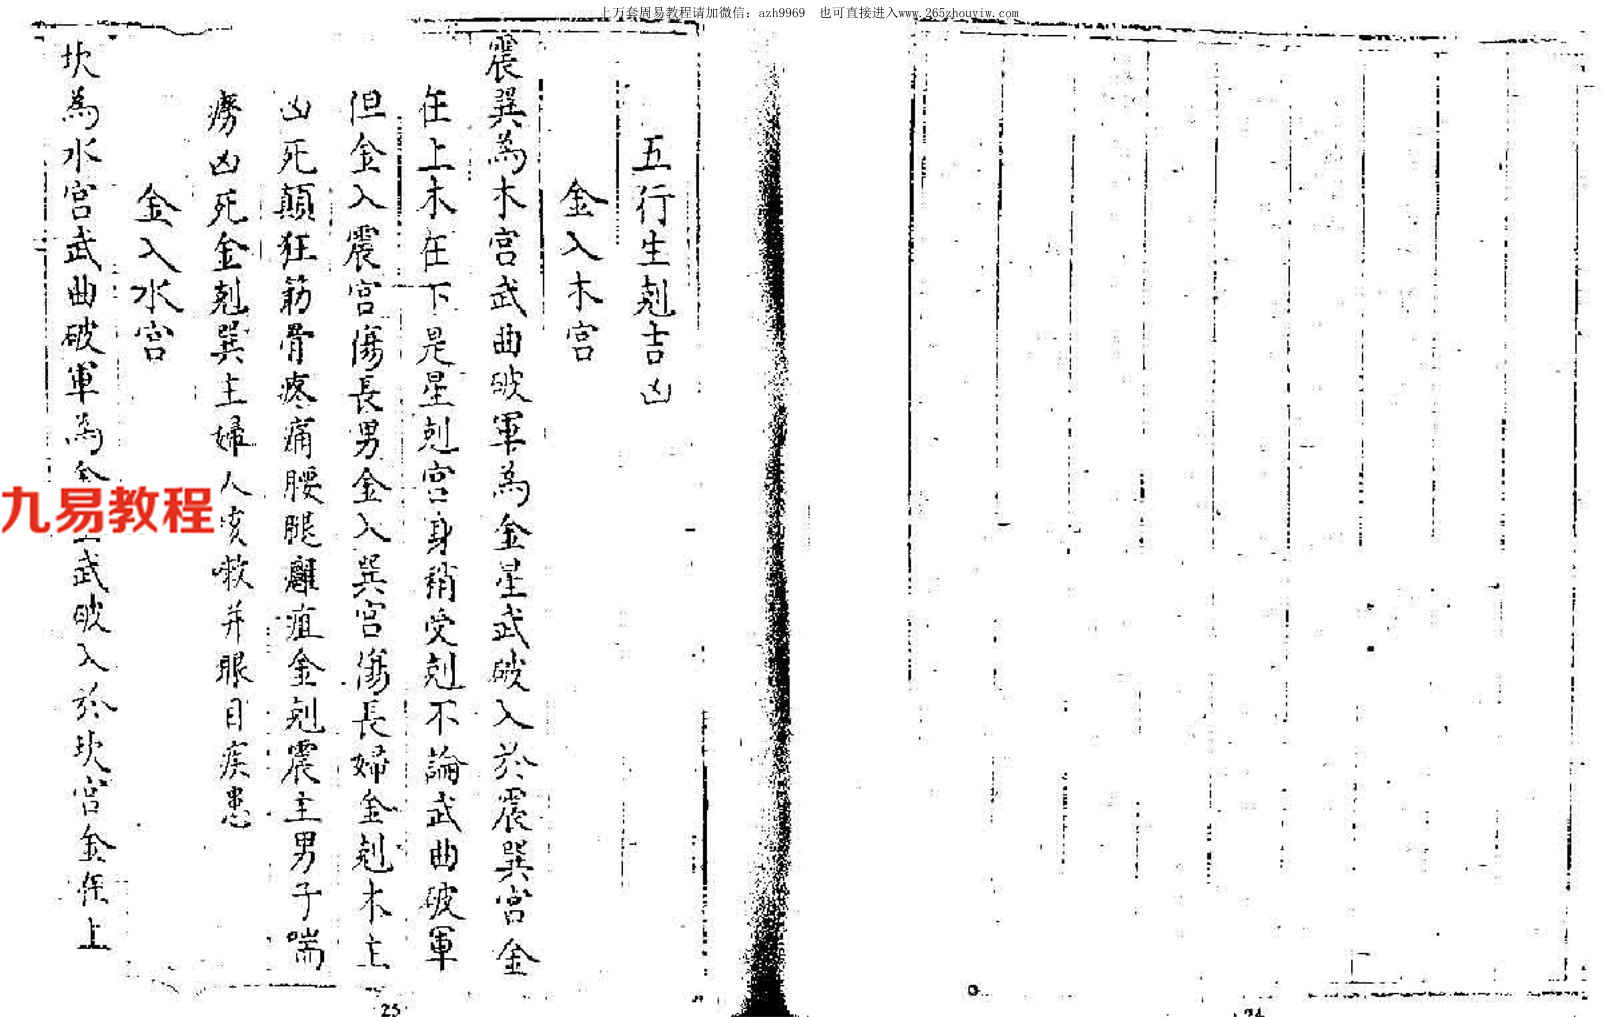 上万套周易教程请加微信：azh9969　也可直接进入www.265zhouyiw.com
五行生剋吉凶
金入木宮
震巽為木宮武曲破軍為金星武破入於震巽宮金
在上木在下是星剋宮身稍受剋不論武曲破軍
但金入震宮傷長男金入巽宮傷長婦金剋木主
凶死顛狂筋骨疼痛腰腿癱疽金剋震主男子喘
癆凶死金剋巽主婦人咳嗽并眼目疾患
金入水宮
坎為水宮武曲破軍為金武破入於坎宮金在上
九易教程
25